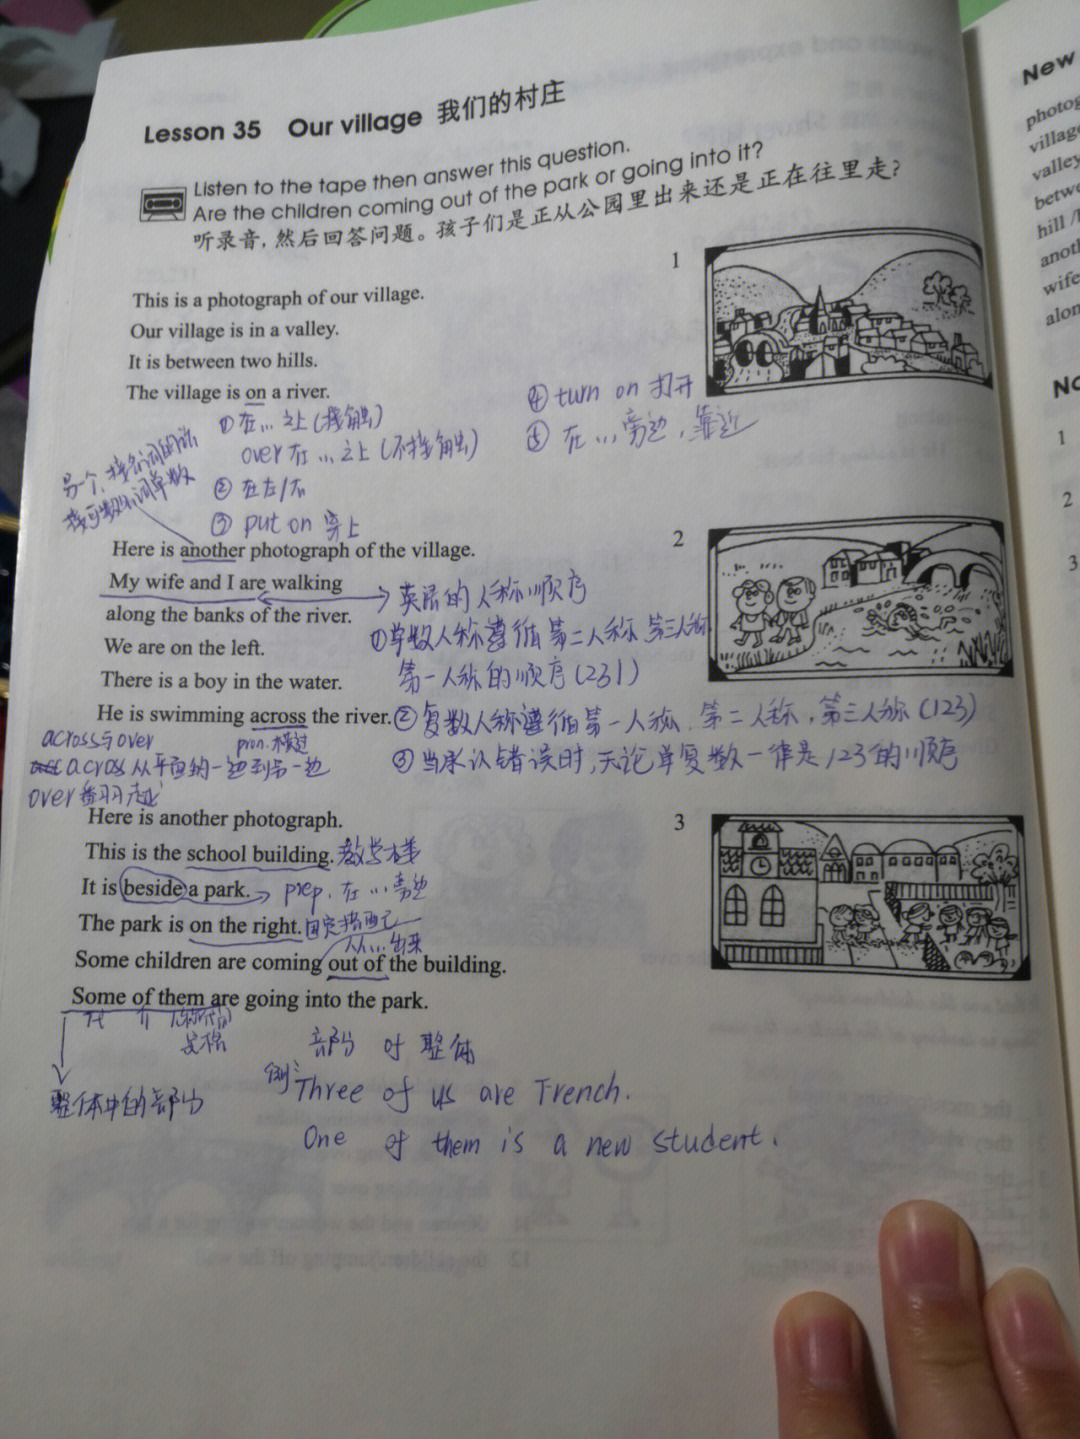 Lesson 35 Our village 我们的村庄
Listen to the tape then answer this question.
Are the children coming out of the park or going into it?
听录音，然后回答问题。孩子们是正从公园里出来还是正在往里走？
1
This is a photograph of our village.
Our village is in a valley.
It is between two hills.
The village is on a river.
①在...之上(接触)
over在...之上(不接触)
②在左/右
③put on 穿上
④turn on 打开
⑤在...旁边，靠近
另一个，接名词
接可数名词单数
2
Here is another photograph of the village.
My wife and I are walking
along the banks of the river.
We are on the left.
There is a boy in the water.
He is swimming across the river.
英语的人称顺序
①单数人称遵循第二人称、第三人称
第一人称的顺序(231)
②复数人称遵循第一人称、第二人称，第三人称(123)
③当承认错误时，无论单复数一律是123的顺序
across与over
pron.横过
acros从平面的一边到另一边
over翻越
3
Here is another photograph.
This is the school building. 教学楼
It is beside a park. prep.在...旁边
The park is on the right. 固定搭配
从...出来
Some children are coming out of the building.
Some of them are going into the park.
代 介 人称代词
宾格
整体中的部分
部分 of 整体
例：Three of us are Trench.
One of them is a new student.
New
photog
village
valley
betwe
hill /h
anoth
wife
alon
No
1
2
3